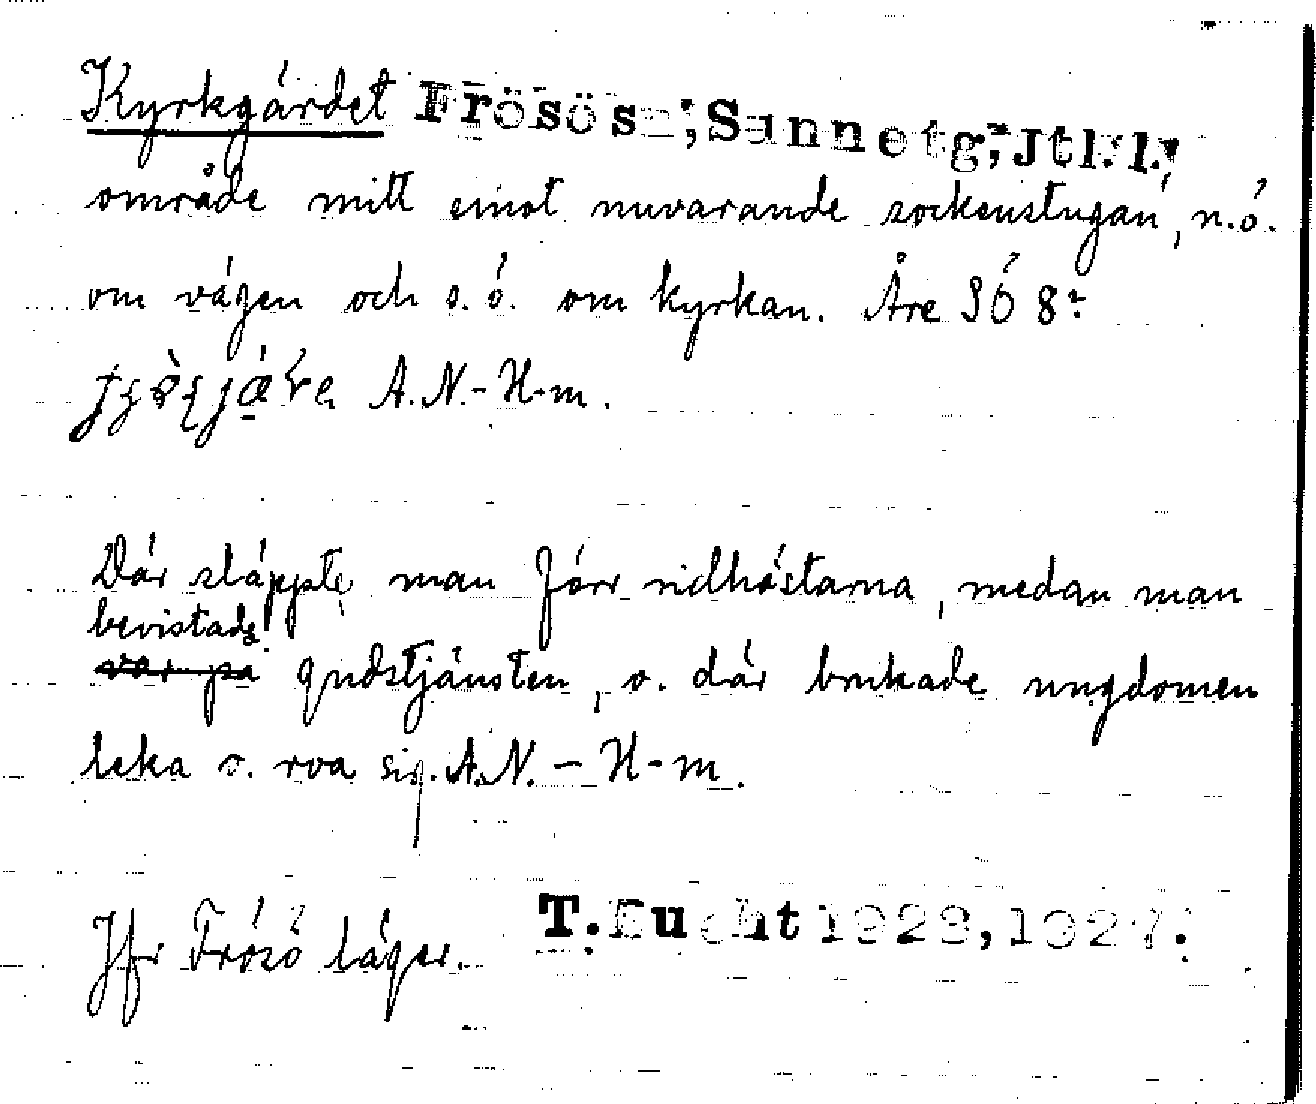 Kyrkgärdet Frösö sn, Sunne tg, Jtl. l.,
område mitt emot nuvarande sockenstugan, n.ö.
om vägen och s.ö. om kyrkan. Åre SÖ 8
A.N.-H-m.
Där släppte man förr ridhästarna, medan man
bevistade
var på gudstjänsten, o. där brukade ungdomen
leka o. roa sig. A.N. - H-m.
Jfr Frösö läger. T. Bucht 1928, 1927.